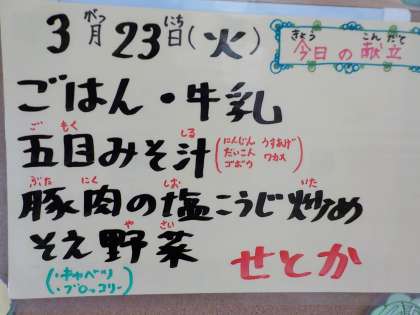 3月23日(火)
がつ にち
きょう こん だて
今日の献立
ごはん・牛乳
ご もく しる
五目みそ汁
(にんじん うすあげ
だいこん ワカメ
ゴボウ)
ぶた にく しお いた
豚肉の塩こうじ炒め
や さい
そえ野菜
(・キャベツ
・ブロッコリー)
せとか